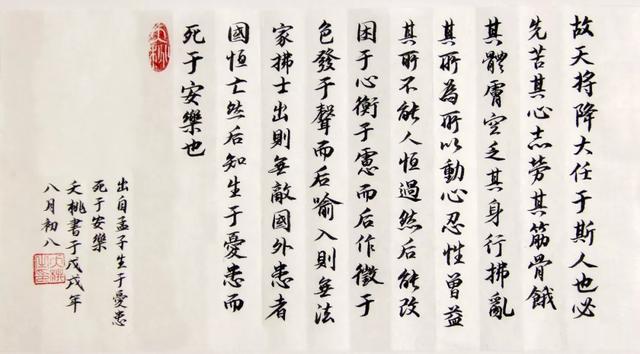 故天将降大任于斯人也必
先苦其心志劳其筋骨餓
其體膚空乏其身行拂亂
其所為所以動心忍性曾益
其所不能人恒過然后能改
困于心衡于慮而后作徵于
色發于聲而后喻入則無法
家拂士出則無敵國外患者
國恒亡然后知生于憂患而
死于安樂也
出自孟子生于憂患
死于安樂
文桃書于戊戌年
八月初八